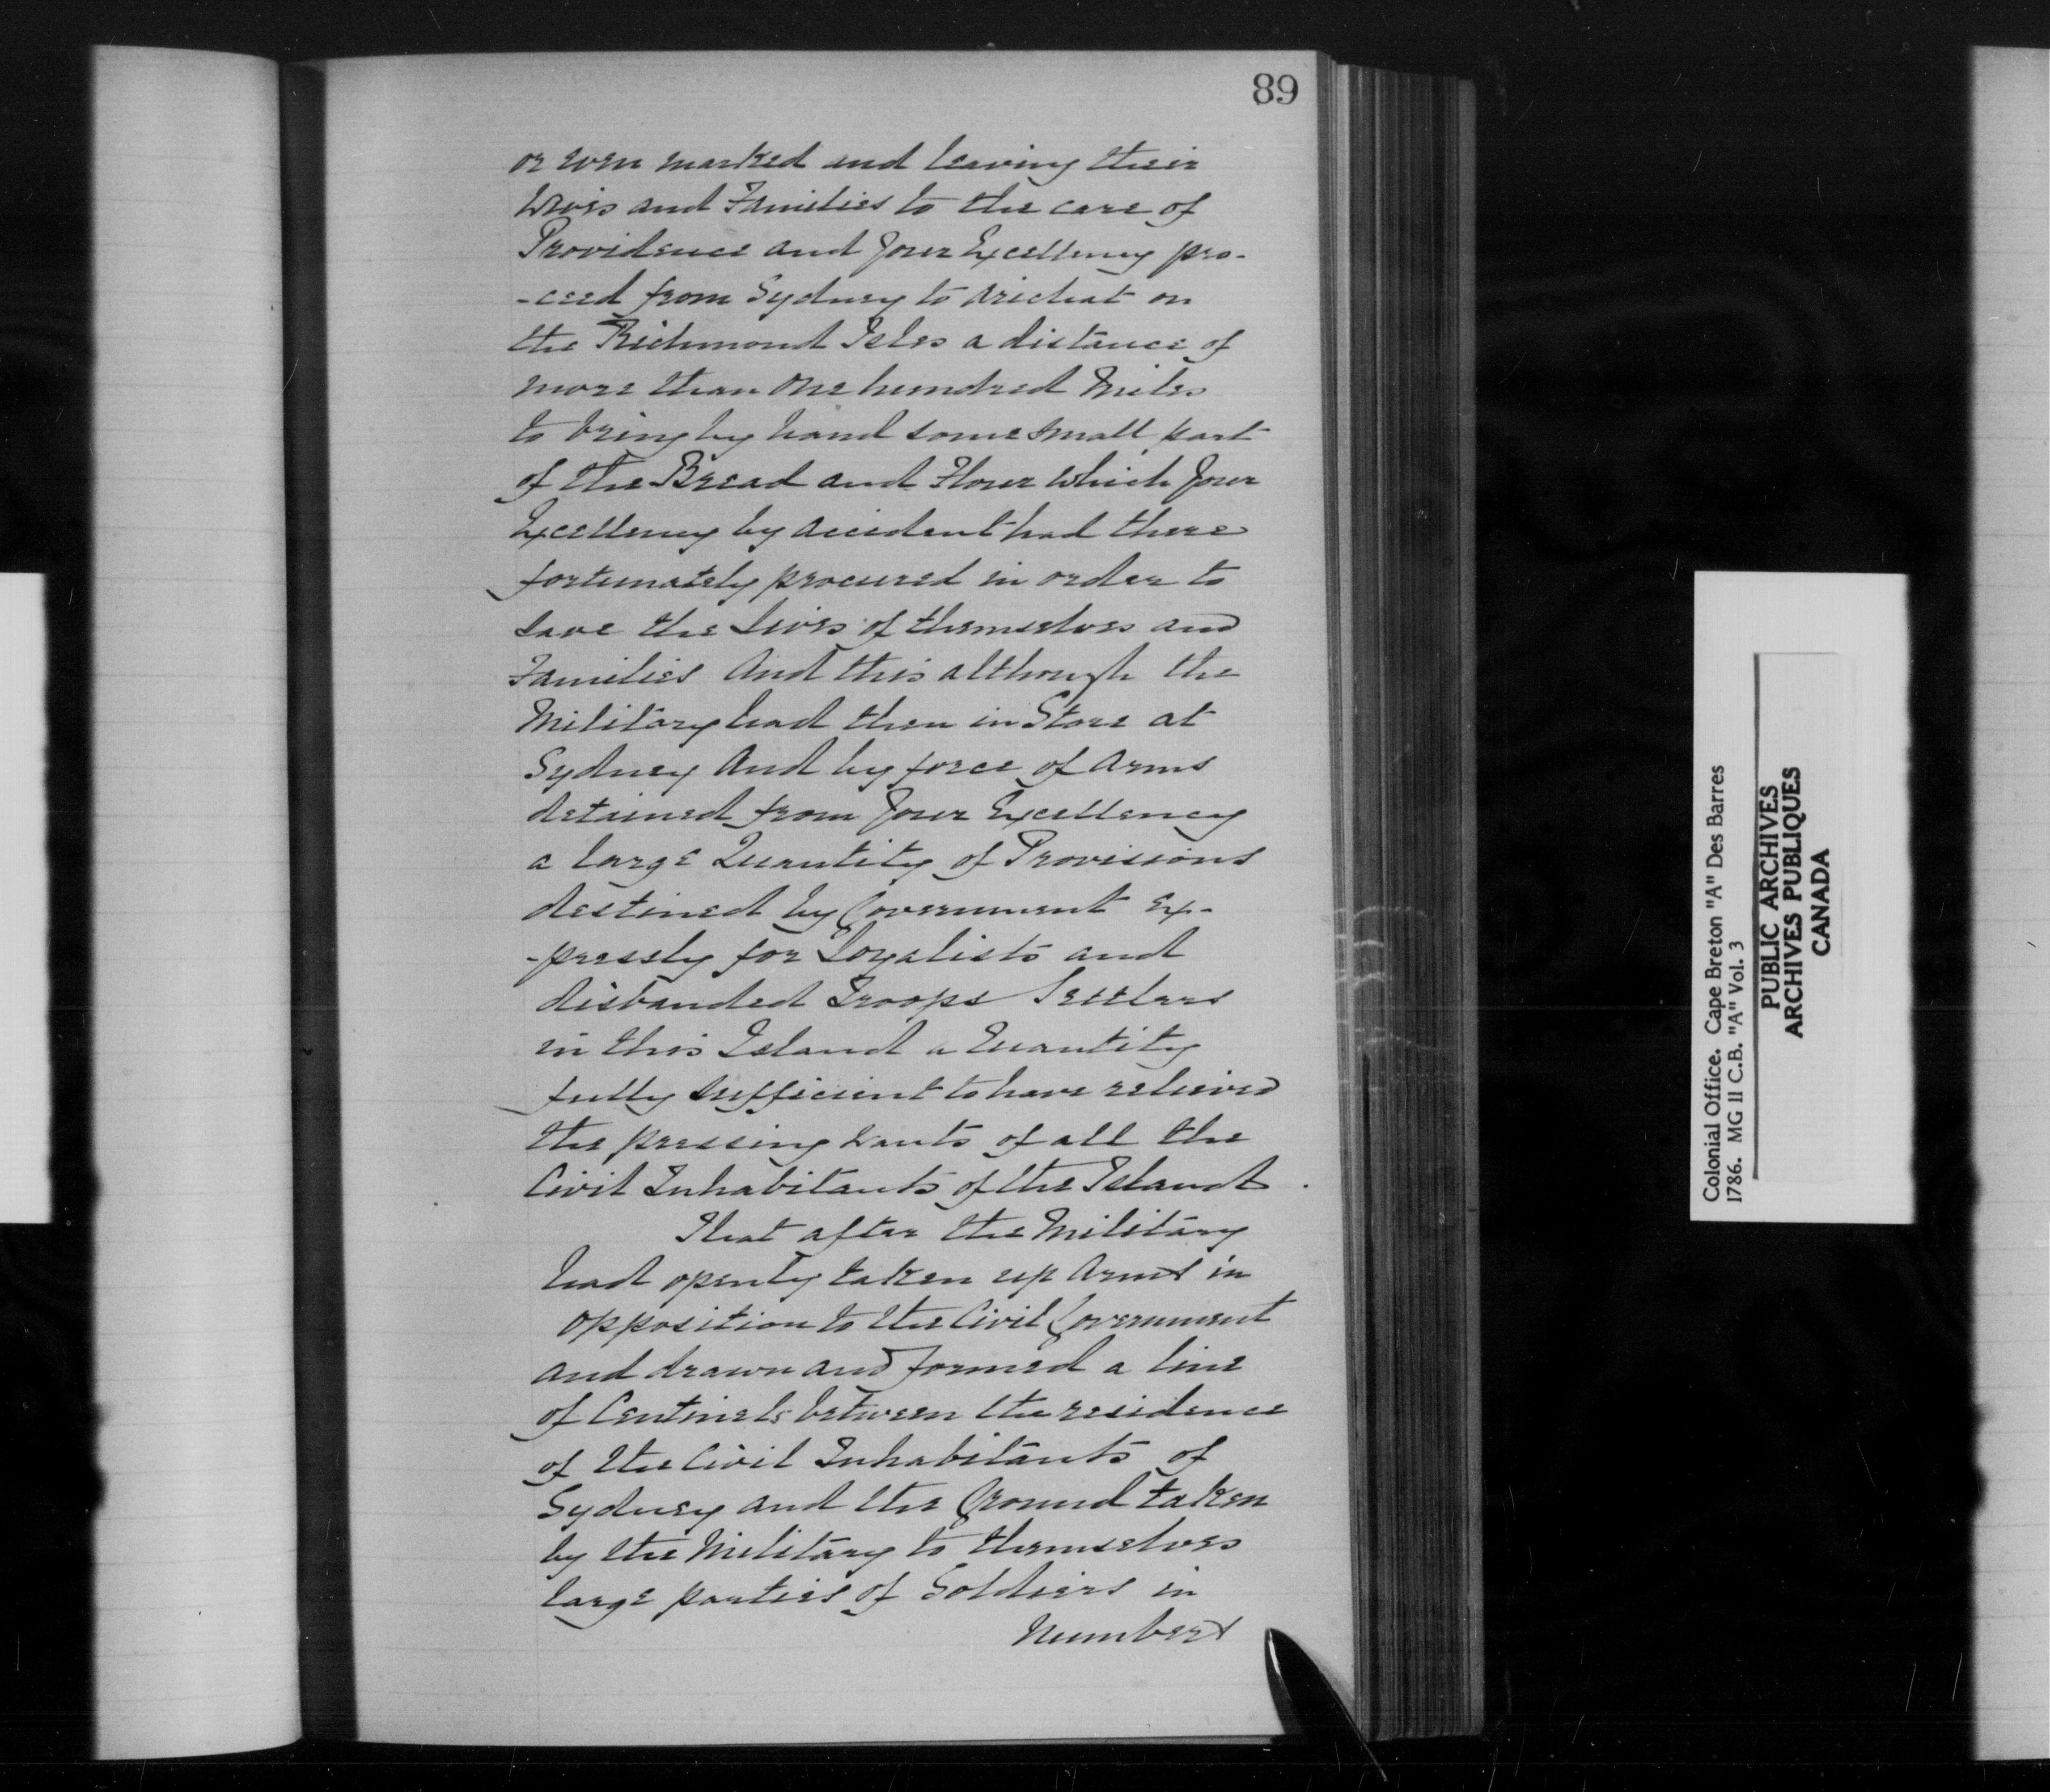 89
or even marked and leaving their
Wives and Families to the care of
Providence and Your Excellency pro-
-ceed from Sydney to Arichat on
the Richmond Isles a distance of
more than one hundred Miles
to bring by hand some small part
of the Bread and Flour which Your
Excellency by accident had there
fortunately procured in order to
save the lives of themselves and
Families And this although the
Military had then in Store at
Sydney And by force of Arms
detained from Your Excellency
a large Quantity of Provisions
destined by Government Ex-
-pressly for Loyalists and
disbanded Troops Settlers
in this Island a Quantity
fully sufficient to have relieved
the pressing wants of all the
Civil Inhabitants of the Island.
That after the Military
had openly taken up Arms in
opposition to the Civil Government
and drawn and formed a line
of Centinels between the residence
of the Civil Inhabitants of
Sydney and the Ground taken
by the Military to themselves
large parties of Soldiers in
Numbers
Colonial Office. Cape Breton "A" Des Barres
1786. MG II C.B. "A" Vol. 3
PUBLIC ARCHIVES
ARCHIVES PUBLIQUES
CANADA